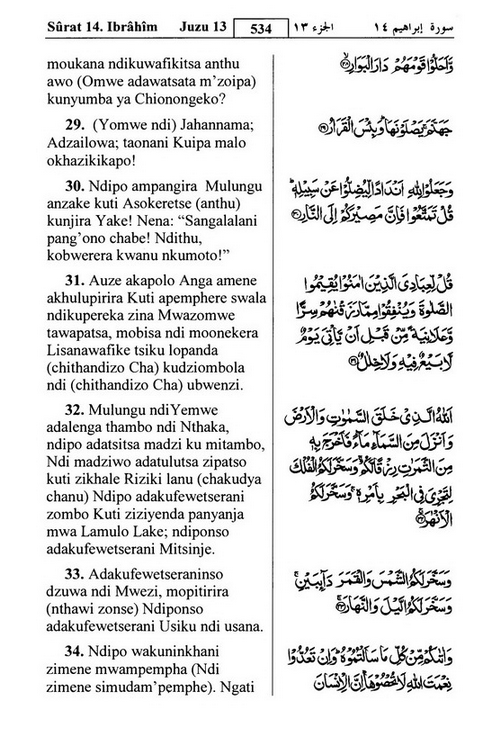 Sûrat 14. Ibrâhîm Juzu 13 534 الجزء ١٣ سورة إبراهيم ١٤
moukana ndikuwafikitsa anthu
awo (Omwe adawatsata m’zoipa)
kunyumba ya Chionongeko?
29. (Yomwe ndi) Jahannama;
Adzailowa; taonani Kuipa malo
okhazikikapo!
30. Ndipo ampangira Mulungu
anzake kuti Asokeretse (anthu)
kunjira Yake! Nena: “Sangalalani
pang’ono chabe! Ndithu,
kobwerera kwanu nkumoto!”
31. Auze akapolo Anga amene
akhulupirira Kuti apemphere swala
ndikupereka zina Mwazomwe
tawapatsa, mobisa ndi moonekera
Lisanawafike tsiku lopanda
(chithandizo Cha) kudziombola
ndi (chithandizo Cha) ubwenzi.
32. Mulungu ndiYemwe
adalenga thambo ndi Nthaka,
ndipo adatsitsa madzi ku mitambo,
Ndi madziwo adatulutsa zipatso
kuti zikhale Riziki lanu (chakudya
chanu) Ndipo adakufewetserani
zombo Kuti ziziyenda panyanja
mwa Lamulo Lake; ndiponso
adakufewetserani Mitsinje.
33. Adakufewetseraninso
dzuwa ndi Mwezi, mopitirira
(nthawi zonse) Ndiponso
adakufewetserani Usiku ndi usana.
34. Ndipo wakuninkhani
zimene mwampempha (Ndi
zimene simudam’pemphe). Ngati
وَّاَحَلُّوْا قَوْمَهُمْ دَارَ الْبَوَارِ ۝٢٨
جَهَنَّمَ يَصْلَوْنَهَا وَبِئْسَ الْقَرَارُ ۝٢٩
وَجَعَلُوْا لِلّٰهِ اَنْدَادًا لِّيُضِلُّوْا عَنْ سَبِيْلِهٖ
قُلْ تَمَتَّعُوْا فَاِنَّ مَصِيْرَكُمْ اِلَى النَّارِ ۝٣٠
قُلْ لِّعِبَادِيَ الَّذِيْنَ اٰمَنُوْا يُقِيْمُوا
الصَّلٰوةَ وَيُنْفِقُوْا مِمَّا رَزَقْنٰهُمْ سِرًّا
وَّعَلَانِيَةً مِّنْ قَبْلِ اَنْ يَّاْتِيَ يَوْمٌ
لَّا بَيْعٌ فِيْهِ وَلَا خِلٰلٌ ۝٣١
اَللّٰهُ الَّذِيْ خَلَقَ السَّمٰوٰتِ وَالْاَرْضَ
وَاَنْزَلَ مِنَ السَّمَآءِ مَآءً فَاَخْرَجَ بِهٖ
مِنَ الثَّمَرٰتِ رِزْقًا لَّكُمْ وَسَخَّرَ لَكُمُ الْفُلْكَ
لِتَجْرِيَ فِي الْبَحْرِ بِاَمْرِهٖ وَسَخَّرَ لَكُمُ
الْاَنْهٰرَ ۝٣٢
وَسَخَّرَ لَكُمُ الشَّمْسَ وَالْقَمَرَ دَآىِٕبَيْنِ
وَسَخَّرَ لَكُمُ الَّيْلَ وَالنَّهَارَ ۝٣٣
وَاٰتٰىكُمْ مِّنْ كُلِّ مَا سَاَلْتُمُوْهُ وَاِنْ تَعُدُّوْا
نِعْمَتَ اللّٰهِ لَا تُحْصُوْهَا اِنَّ الْاِنْسَانَ